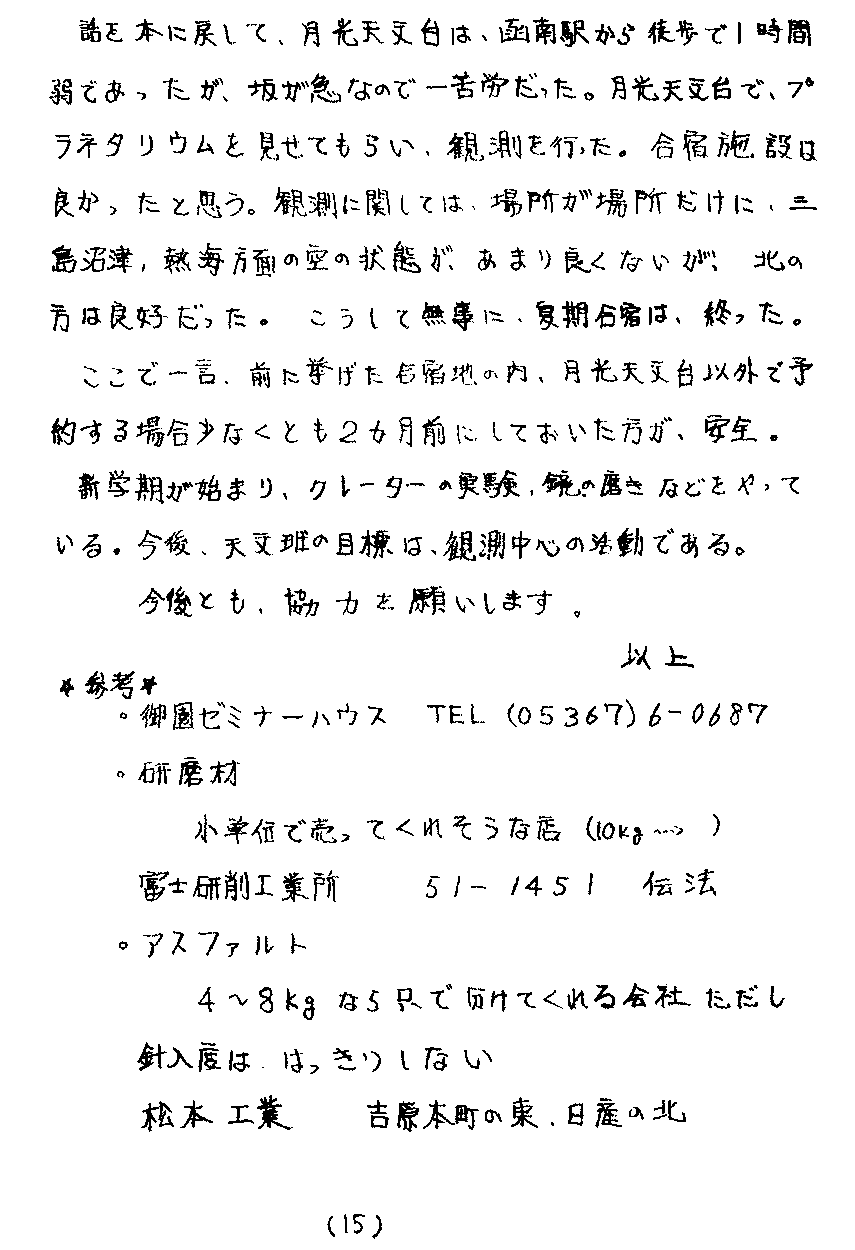 話を本に戻して、月光天文台は、函南駅から徒歩で1時間
弱であったが、坂が急なので一苦労だった。月光天文台で、プ
ラネタリウムを見せてもらい、観測を行った。合宿施設は
良かったと思う。観測に関しては、場所が場所だけに、三
島沼津，熱海方面の空の状態が、あまり良くないが、北の
方は良好だった。こうして無事に、夏期合宿は、終った。
ここで一言、前に挙げた合宿地の内、月光天文台以外で予
約する場合少なくとも2カ月前にしておいた方が、安全。
新学期が始まり、クレーターの実験，鏡の磨きなどをやって
いる。今後、天文班の目標は、観測中心の活動である。
今後とも、協力を願いします。
以上
*参考*
。御園ゼミナーハウス TEL (05367)6-0687
。研磨材
小単位で売ってくれそうな店 (10kg〜 )
富士研削工業所 51-1451 伝法
。アスファルト
4〜8kgなら只で分けてくれる会社 ただし
針入度は、はっきりしない
松本工業 吉原本町の東、日産の北
(15)